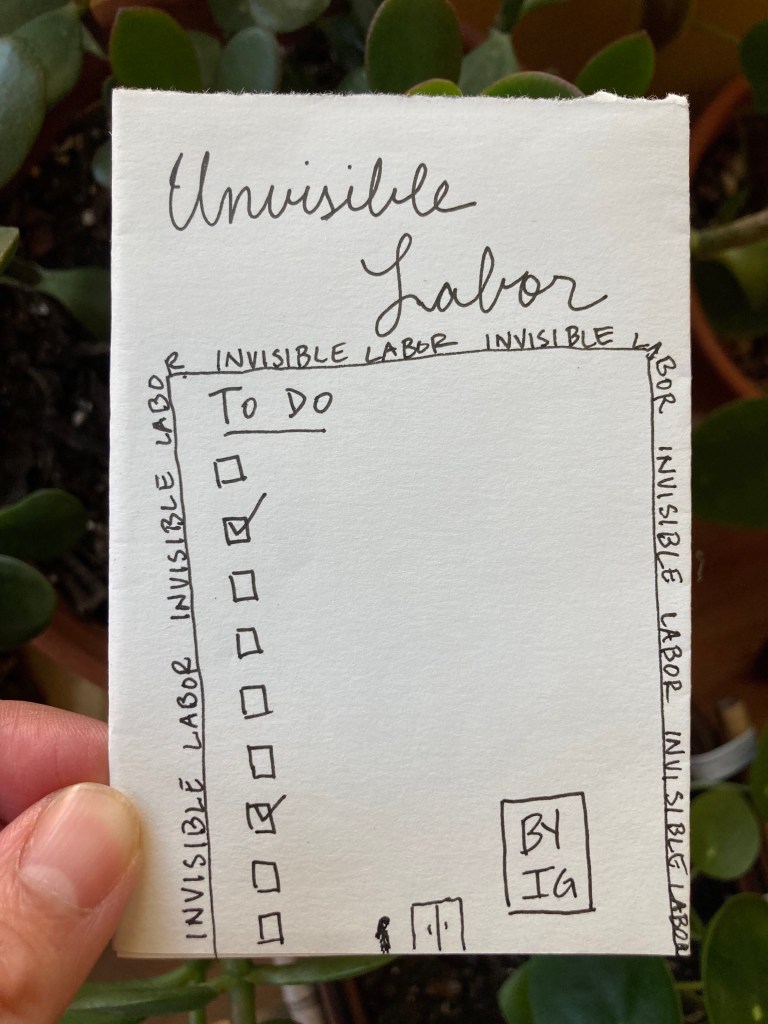 Unvisible
Labor
INVISIBLE LABOR INVISIBLE LABOR
INVISIBLE LABOR INVISIBLE LABOR
INVISIBLE LABOR INVISIBLE LABOR
TO DO
BY
IG